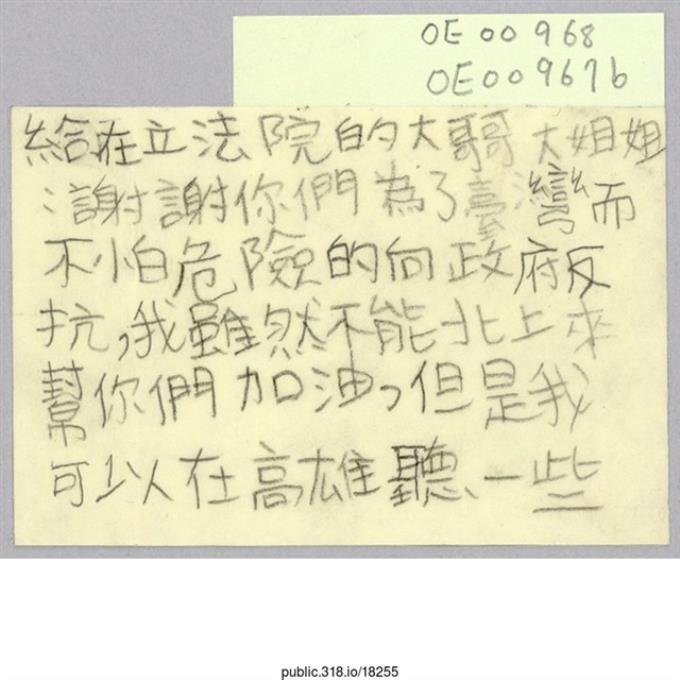 OE 00 968
OE00967b
給在立法院的大哥大姐姐
:謝謝你們為了臺灣而
不怕危險的向政府反
抗,我雖然不能北上來
幫你們加油,但是我
可以在高雄聽一些
public.318.io/18255